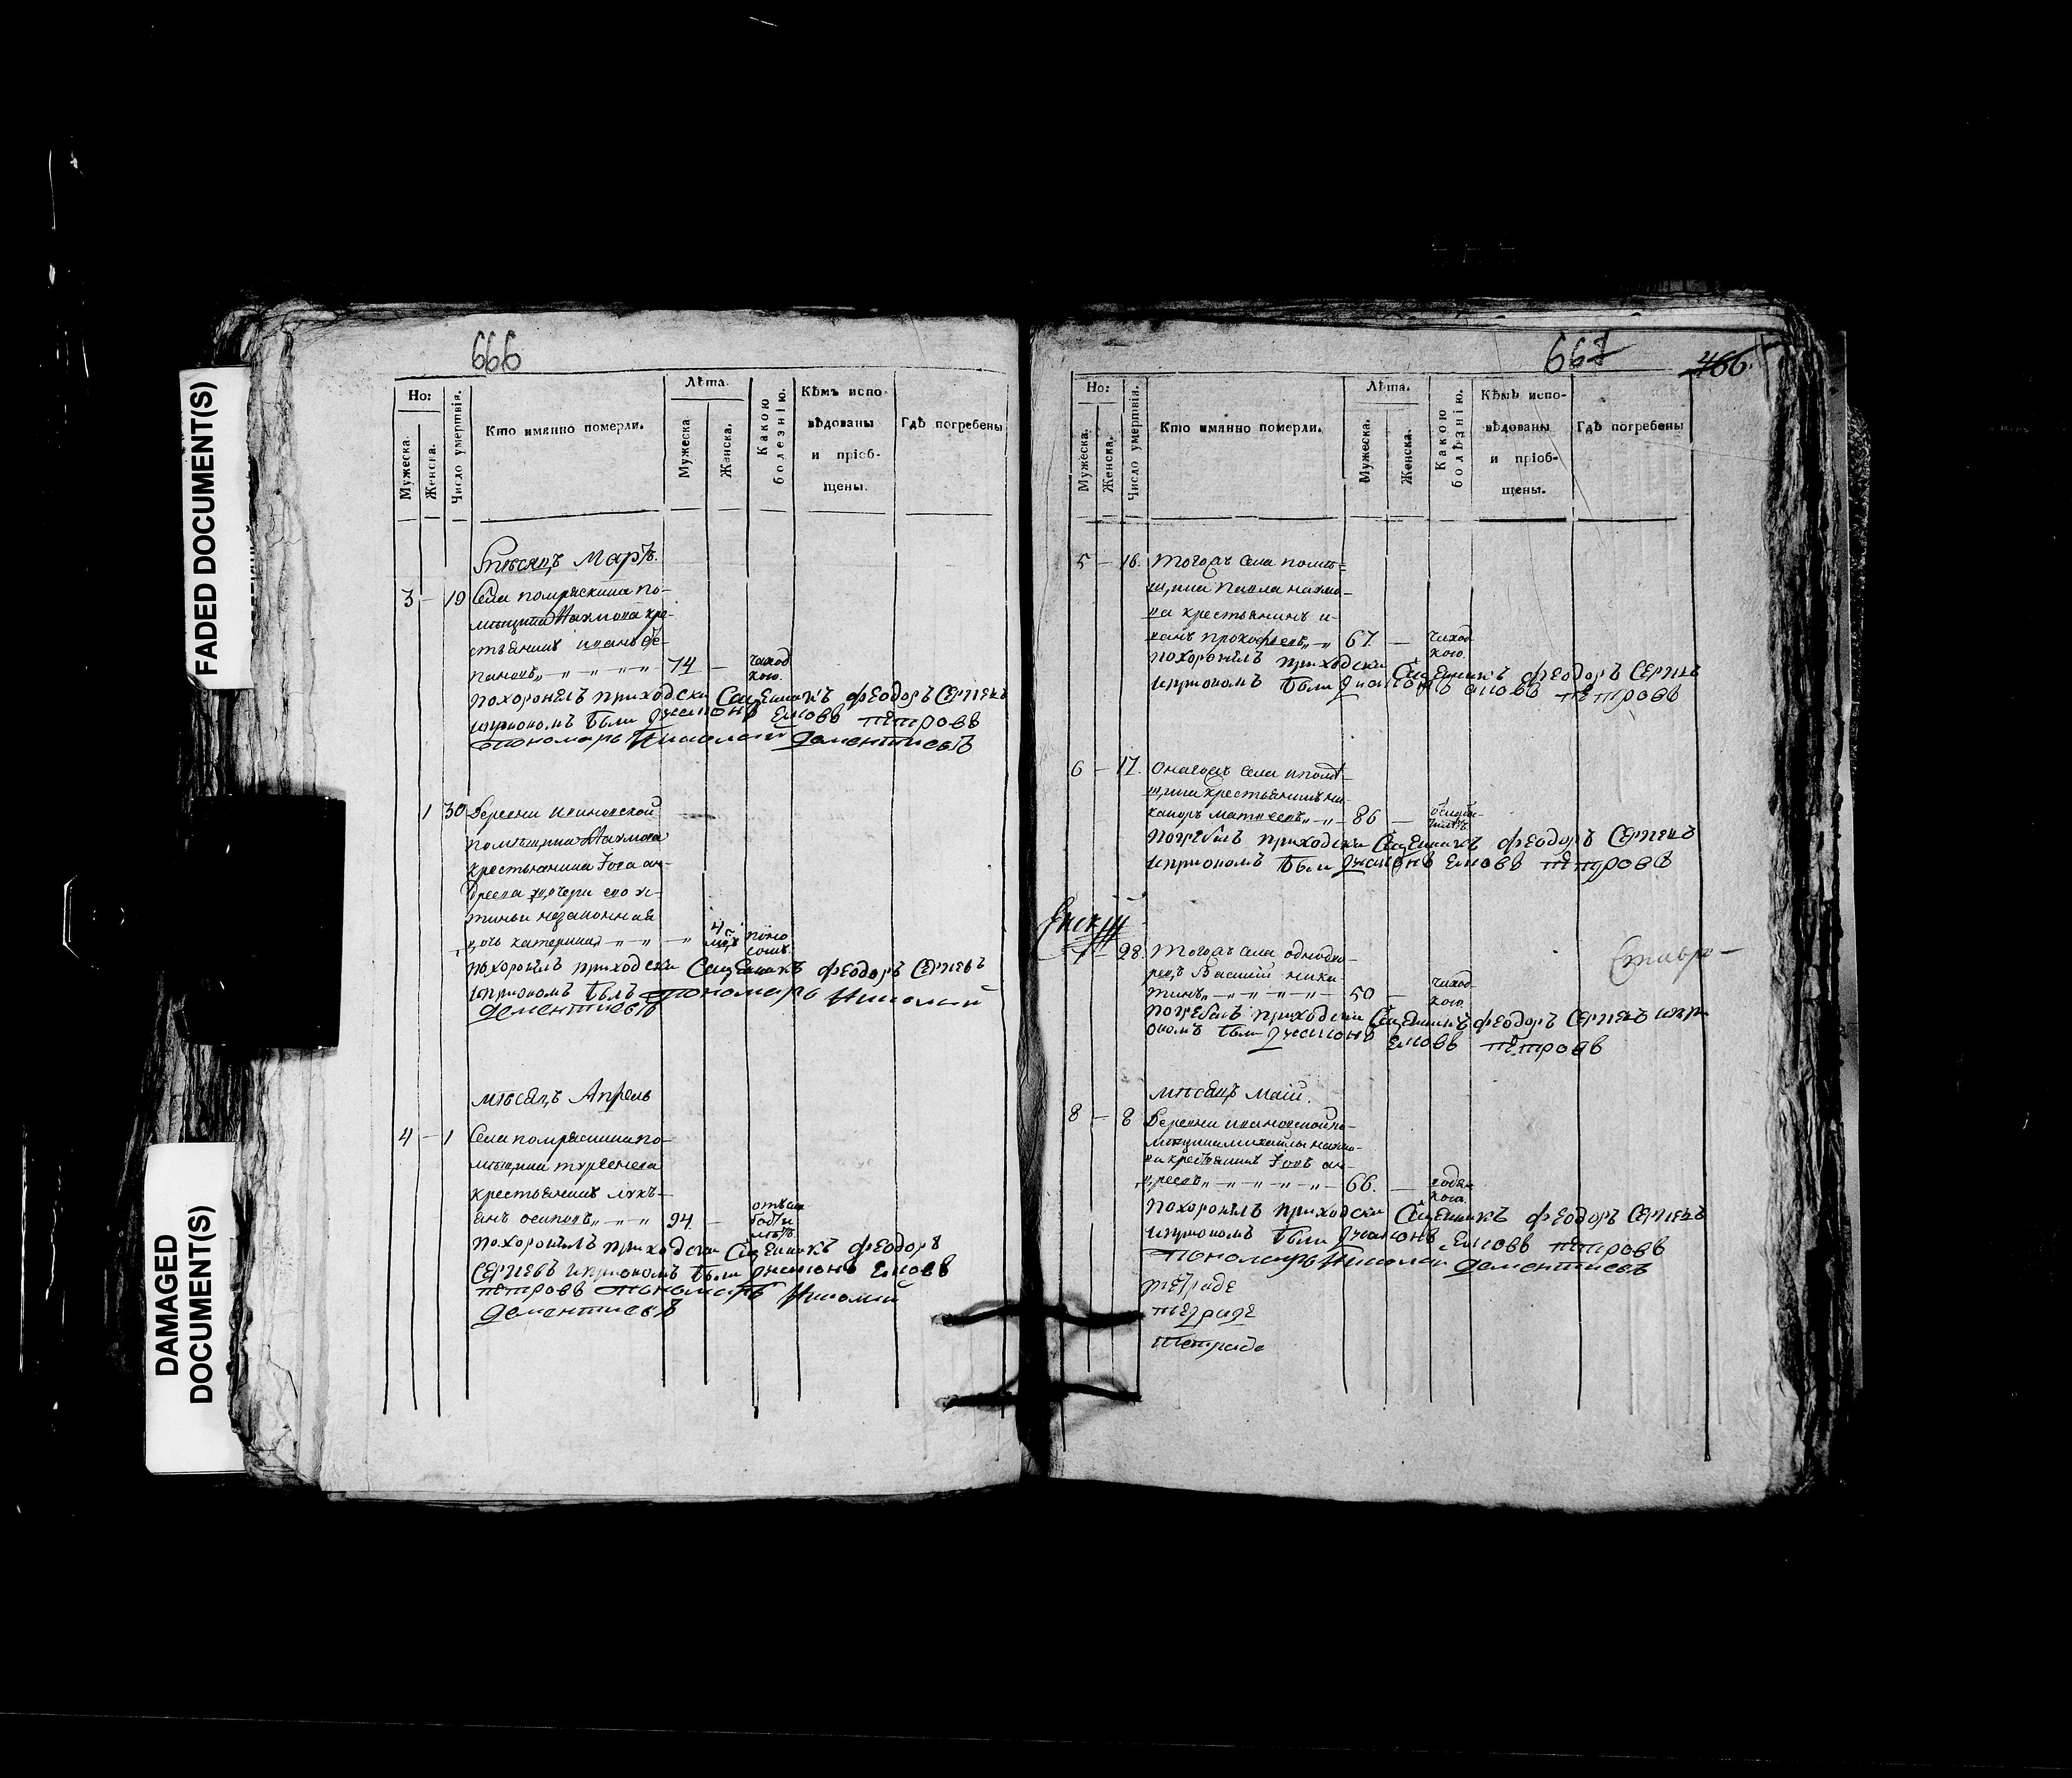 FADED DOCUMENT(S)
DAMAGED
DOCUMENT(S)
666
Но:
Мужеска.
Женска.
Число умертвія.
Кто имянно померли.
Лѣта.
Мужеска
Женска.
Какою
болезнію.
Кѣмъ испо-
вѣдованы
и пріоб-
щены.
Гдѣ погребены
Мѣсяцъ Мартъ.
3 — 19 Села помряскина по-
мѣщика Нахмова кре-
стьянинъ иванъ сте-
пановъ „ — „ — „ 74 — чаход
кою.
похоронилъ приходски Священикъ феодоръ Сергиевъ
иприономъ были диаконъ Еиовъ пѣтровъ
пономарь Николай дементиевъ
1 30 Деревни ивановской
помѣщика Нахмова
крестьянина Iова ан-
дреева дочери его
незаконная
дочь катерина „ — „ — „ 4 мцъ поно
сомъ.
похоронилъ приходски Священикъ феодоръ Сергиевъ
иприономъ былъ пономарь Николай
дементиевъ
мѣсяцъ Апрель
4 — 1 Села помряскина по-
мѣщика тургенева
крестьянинъ лукь-
янъ осиповъ „ — „ — „ 94 —
похоронилъ приходски Священикъ феодоръ
Сергиевъ иприономъ были диаконъ Еиовъ
пѣтровъ пономарь Николай
дементиевъ
667
466.
Но:
Мужеска.
Женска.
Число умертвія.
Кто имянно померли.
Лѣта.
Мужеска.
Женска.
Какою
болѣзнію.
Кѣмъ испо-
вѣдованы
и пріоб-
щены.
Гдѣ погребены
5 — 16. Тогожъ села помѣ-
щика Павла нахмо-
ва крестьянинъ и-
ванъ прокофьевъ „ — „ 67. — чаход
кою.
похоронилъ приходски Священикъ феодоръ Сергиевъ
иприономъ были диаконъ Еиовъ пѣтровъ
6 — 17. Онагожъ села и помѣ-
щика крестьянинъ ни-
каноръ матвеевъ „ — „ 86 —
Погребилъ приходски Священикъ феодоръ Сергиевъ
иприономъ были диаконъ Еиовъ пѣтровъ
7 — 28. Тогожъ села однодво-
рецъ Василий ники-
тинъ „ — „ — „ — „ 50 — чаход
кою.
Ставро-
погребилъ приходски Священикъ феодоръ Сергиевъ ипри
ономъ были диаконъ Еиовъ пѣтровъ
мѣсяцъ маій.
8 — 8 Деревни ивановской по-
мѣщика михайлы нахмо-
ва крестьянинъ Iовъ ан-
дреевъ „ — „ — „ — „ 66. — водян
кою.
похоронилъ приходски Священикъ феодоръ Сергиевъ
иприономъ были диаконъ Еиовъ пѣтровъ
пономарь Николай дементиевъ
тетраде
тетраде
тетраде